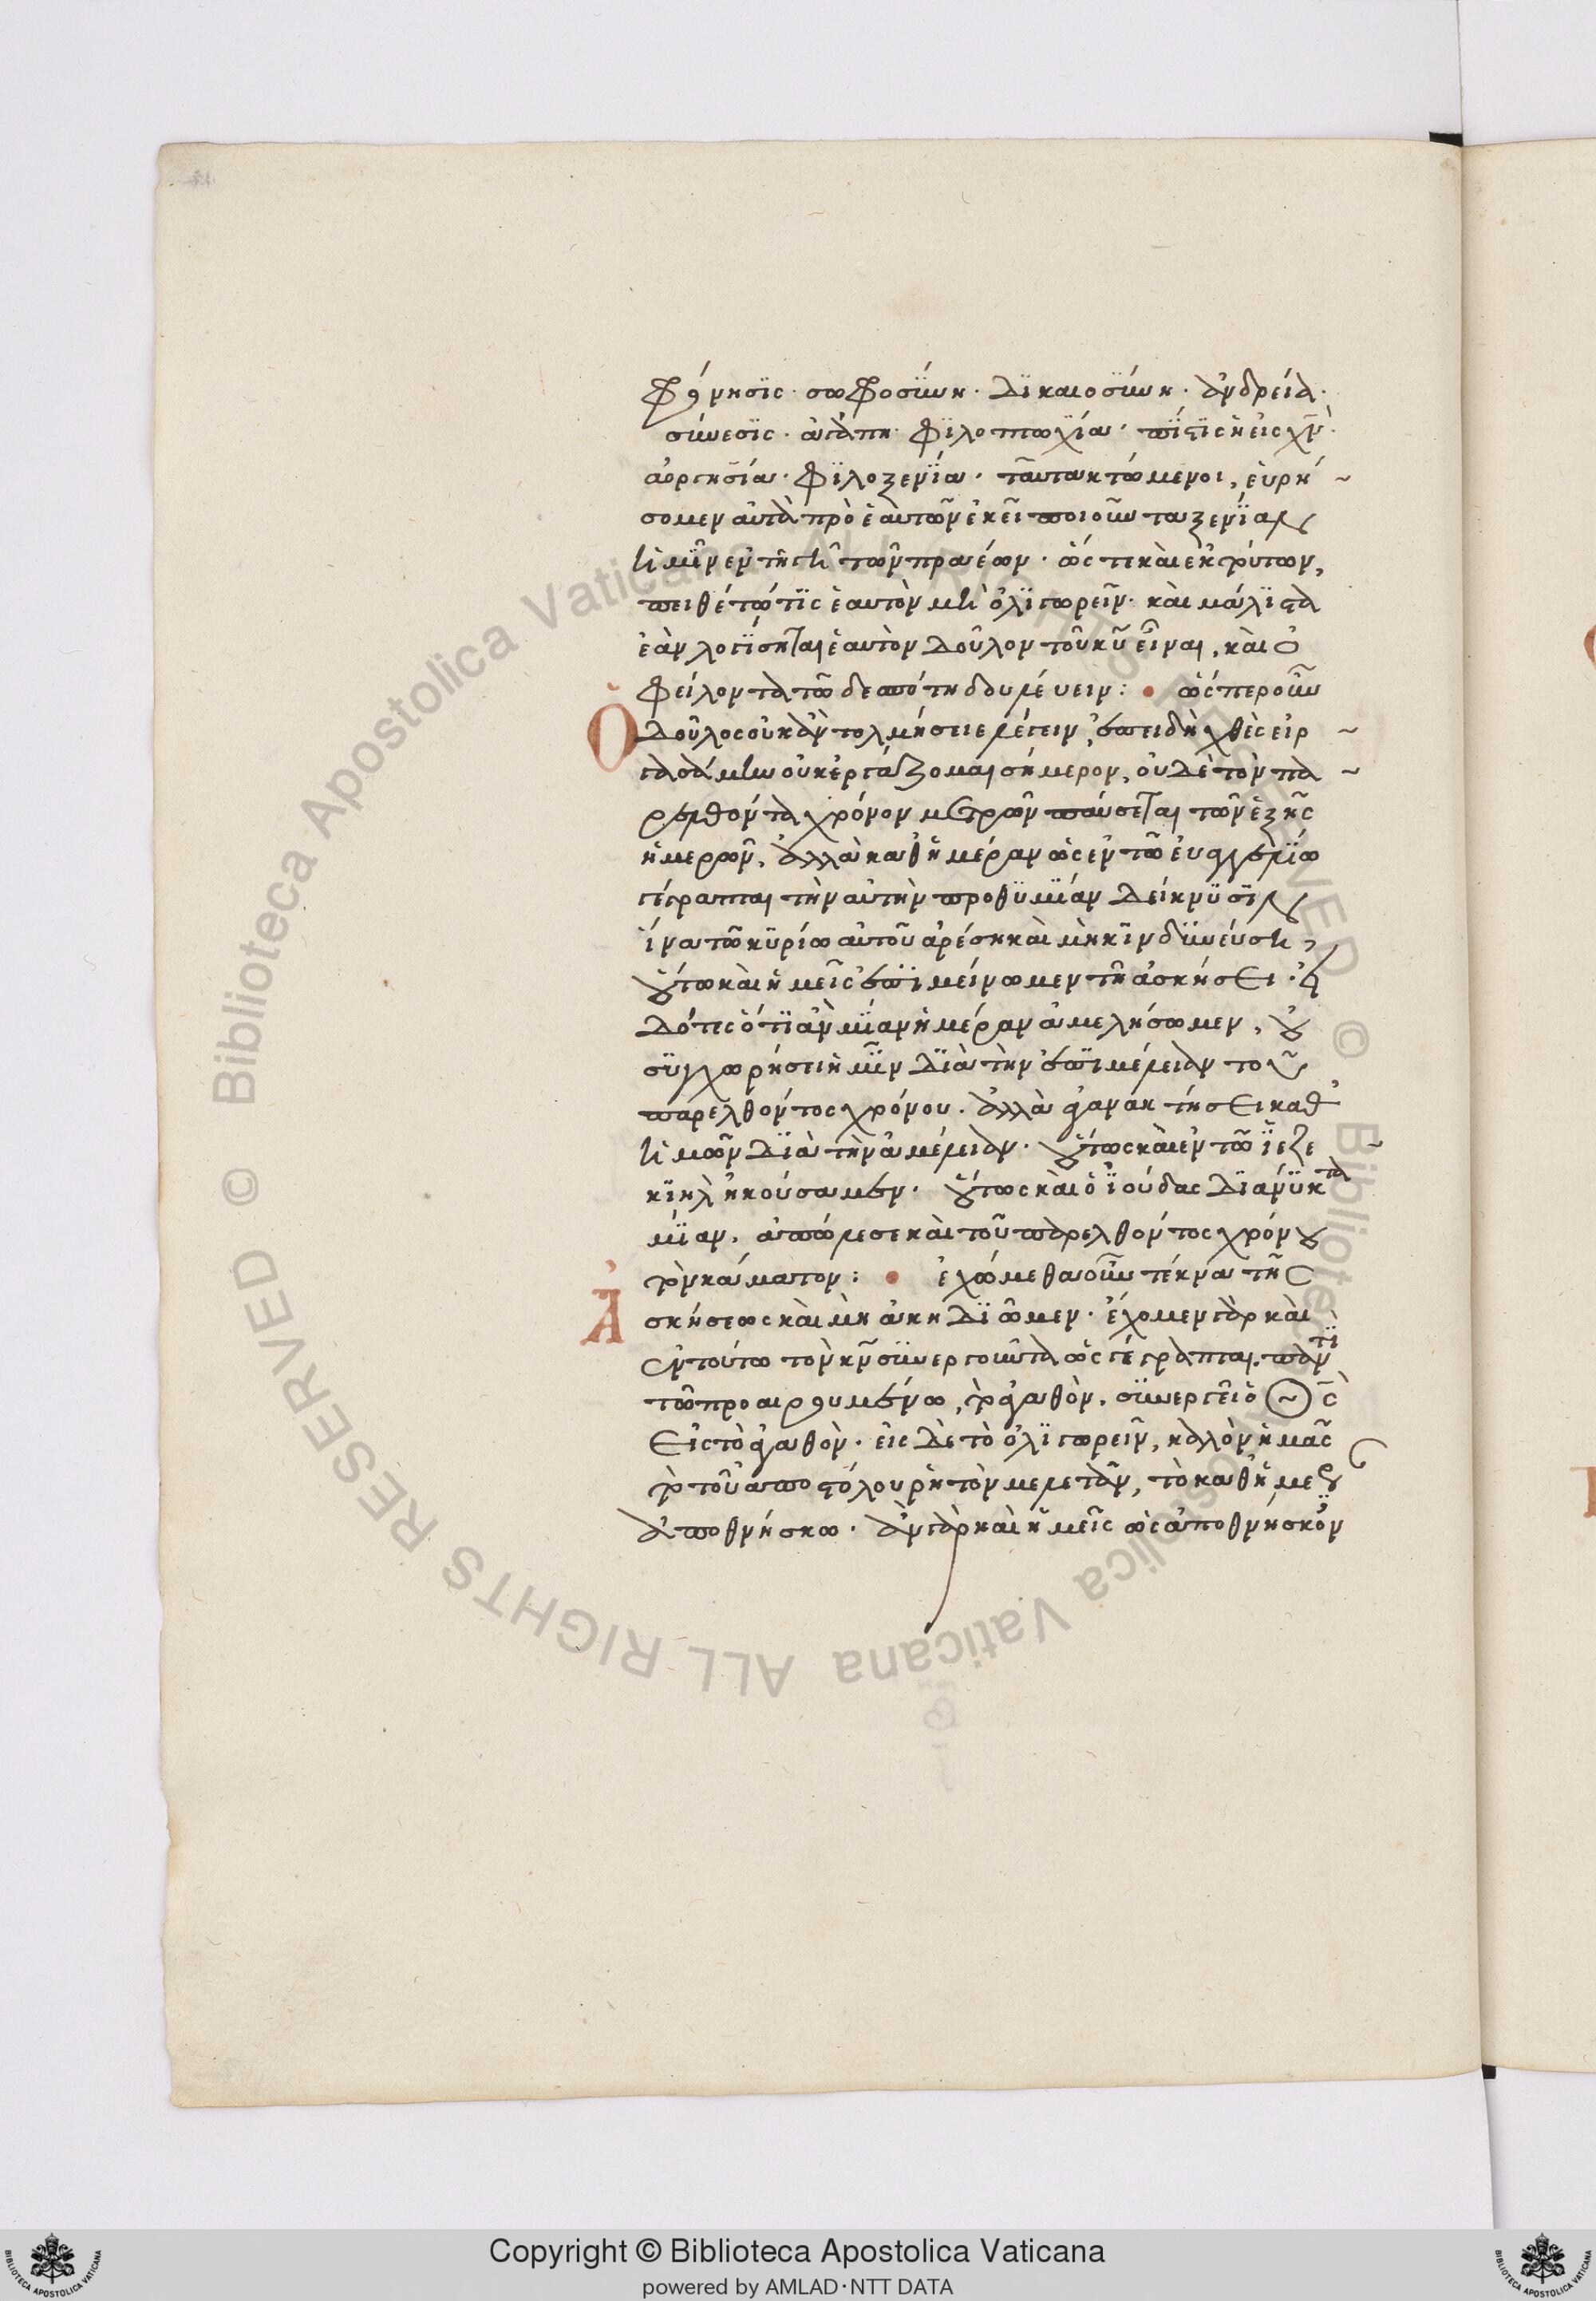 φρόνησϊς· σωφροσΰνη· Δϊκαιοσΰνη· ἀνδρεία·
σύνεσϊς· ἀγάπη· φϊλοπτωχΐα· πΐστϊς ἡ εἰς χν̅·
ἀοργησΐα· φϊλοξενΐα· ταῦτα κτώμενοι, εὑρή
σομεν αὐτὰ πρὸ ἑαυτῶν ἐκεῖ ποιοῦντα ξενΐαν
ἡμῖν ἐν τῇ γῇ τῶν πραέων· ὥστε καὶ ἐκ τούτων,
πειθέτω τϊς ἑαυτὸν μὴ ὀλϊγωρεῖν· καὶ μάλϊστα
ἐὰν λογΐσηται ἑαυτὸν Δοῦλον τοῦ κυ̅ εἶναι, καὶ ὀ
φείλοντα τῶ δεσπότη δουλεύειν: • ὥσπερ οὖν
Ὁ Δοῦλος οὐκ ἂν τολμήσει λέγειν, ἐπειδὴ χθὲς εἰρ
γασάμην οὐκ ἐργάζομαι σήμερον, οὐΔὲ τὸν πα
ρελθόντα χρόνον μετρῶν παύσεται τῶν ἑξῆς
ἡμερῶν, ἀλλὰ καθ ἡμέραν ὡς ἐν τῶ εὐαγγελΐω
γέγραπται τὴν αὐτὴν προθϋμΐαν Δείκνϋσϊν
ἵνα τῶ κϋρίω αὐτοῦ ἀρέση καὶ μὴ κϊνδϋνεύση,
οὕτω καὶ ἡμεῖς ἐπϊμείνωμεν τῇ ἀσκήσει· εἰ
Δότες ὅτϊ ἂν μΐαν ἡμέραν ἀμελήσωμεν, οὐ
σϋγχωρήσει ἡμῖν Δϊὰ τὴν ἐπϊμέλειαν τοῦ
παρελθόντος χρόνου· ἀλλὰ ἀγανακτήσει καθ
ἡμῶν Δϊὰ τὴν ἀμέλειαν· οὕτως καὶ ἐν τῶ ϊεζε
κϊὴλ ἠκούσαμεν· οὕτως καὶ ὁ ϊούδας Δϊὰ νΰκτα
μΐαν, ἀπώλεσε καὶ τοῦ παρελθόντος χρόνου
τὸν κάματον: • ἐχώμεθα οὖν τέκνα τῆς
Ἀ σκήσεως καὶ μὴ ἀκηΔϊῶμεν· ἔχομεν γὰρ καὶ
ἐν τούτω τὸν κν̅ σϋνεργοῦντα ὡς γέγραπται. παντϊ
τῶ προαιρουμένω, τὸ ἀγαθὸν, σϋνεργεῖ ὁ θ̅ς̅
εἰς τὸ ἀγαθὸν· εἰς Δὲ τὸ ὀλϊγωρεῖν, καλὸν ἡμᾶς
τὸ τοῦ ἀποστόλου ρητὸν μελετᾶν, τὸ καθ ἡμέρ
ἀποθνήσκω· ἂν γὰρ καὶ ἡμεῖς ὡς ἀποθνήσκον
Copyright © Biblioteca Apostolica Vaticana
powered by AMLAD·NTT DATA